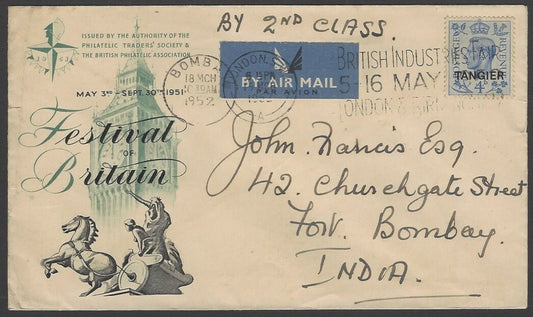 BY 2ND CLASS.
ISSUED BY THE AUTHORITY OF THE
PHILATELIC TRADERS' SOCIETY &
THE BRITISH PHILATELIC ASSOCIATION.
1951
MAY 3RD - SEPT. 30TH 1951
Festival
OF
Britain
BOMBAY
18 MCH
10-30AM
1952
LONDON, S.
PM
BY AIR MAIL
PAR AVION
BRITISH INDUSTRIES FAIR
5-16 MAY
LONDON &
4D
TANGIER
John Francis Esq.
42. Churchgate Street
Fort. Bombay.
INDIA.